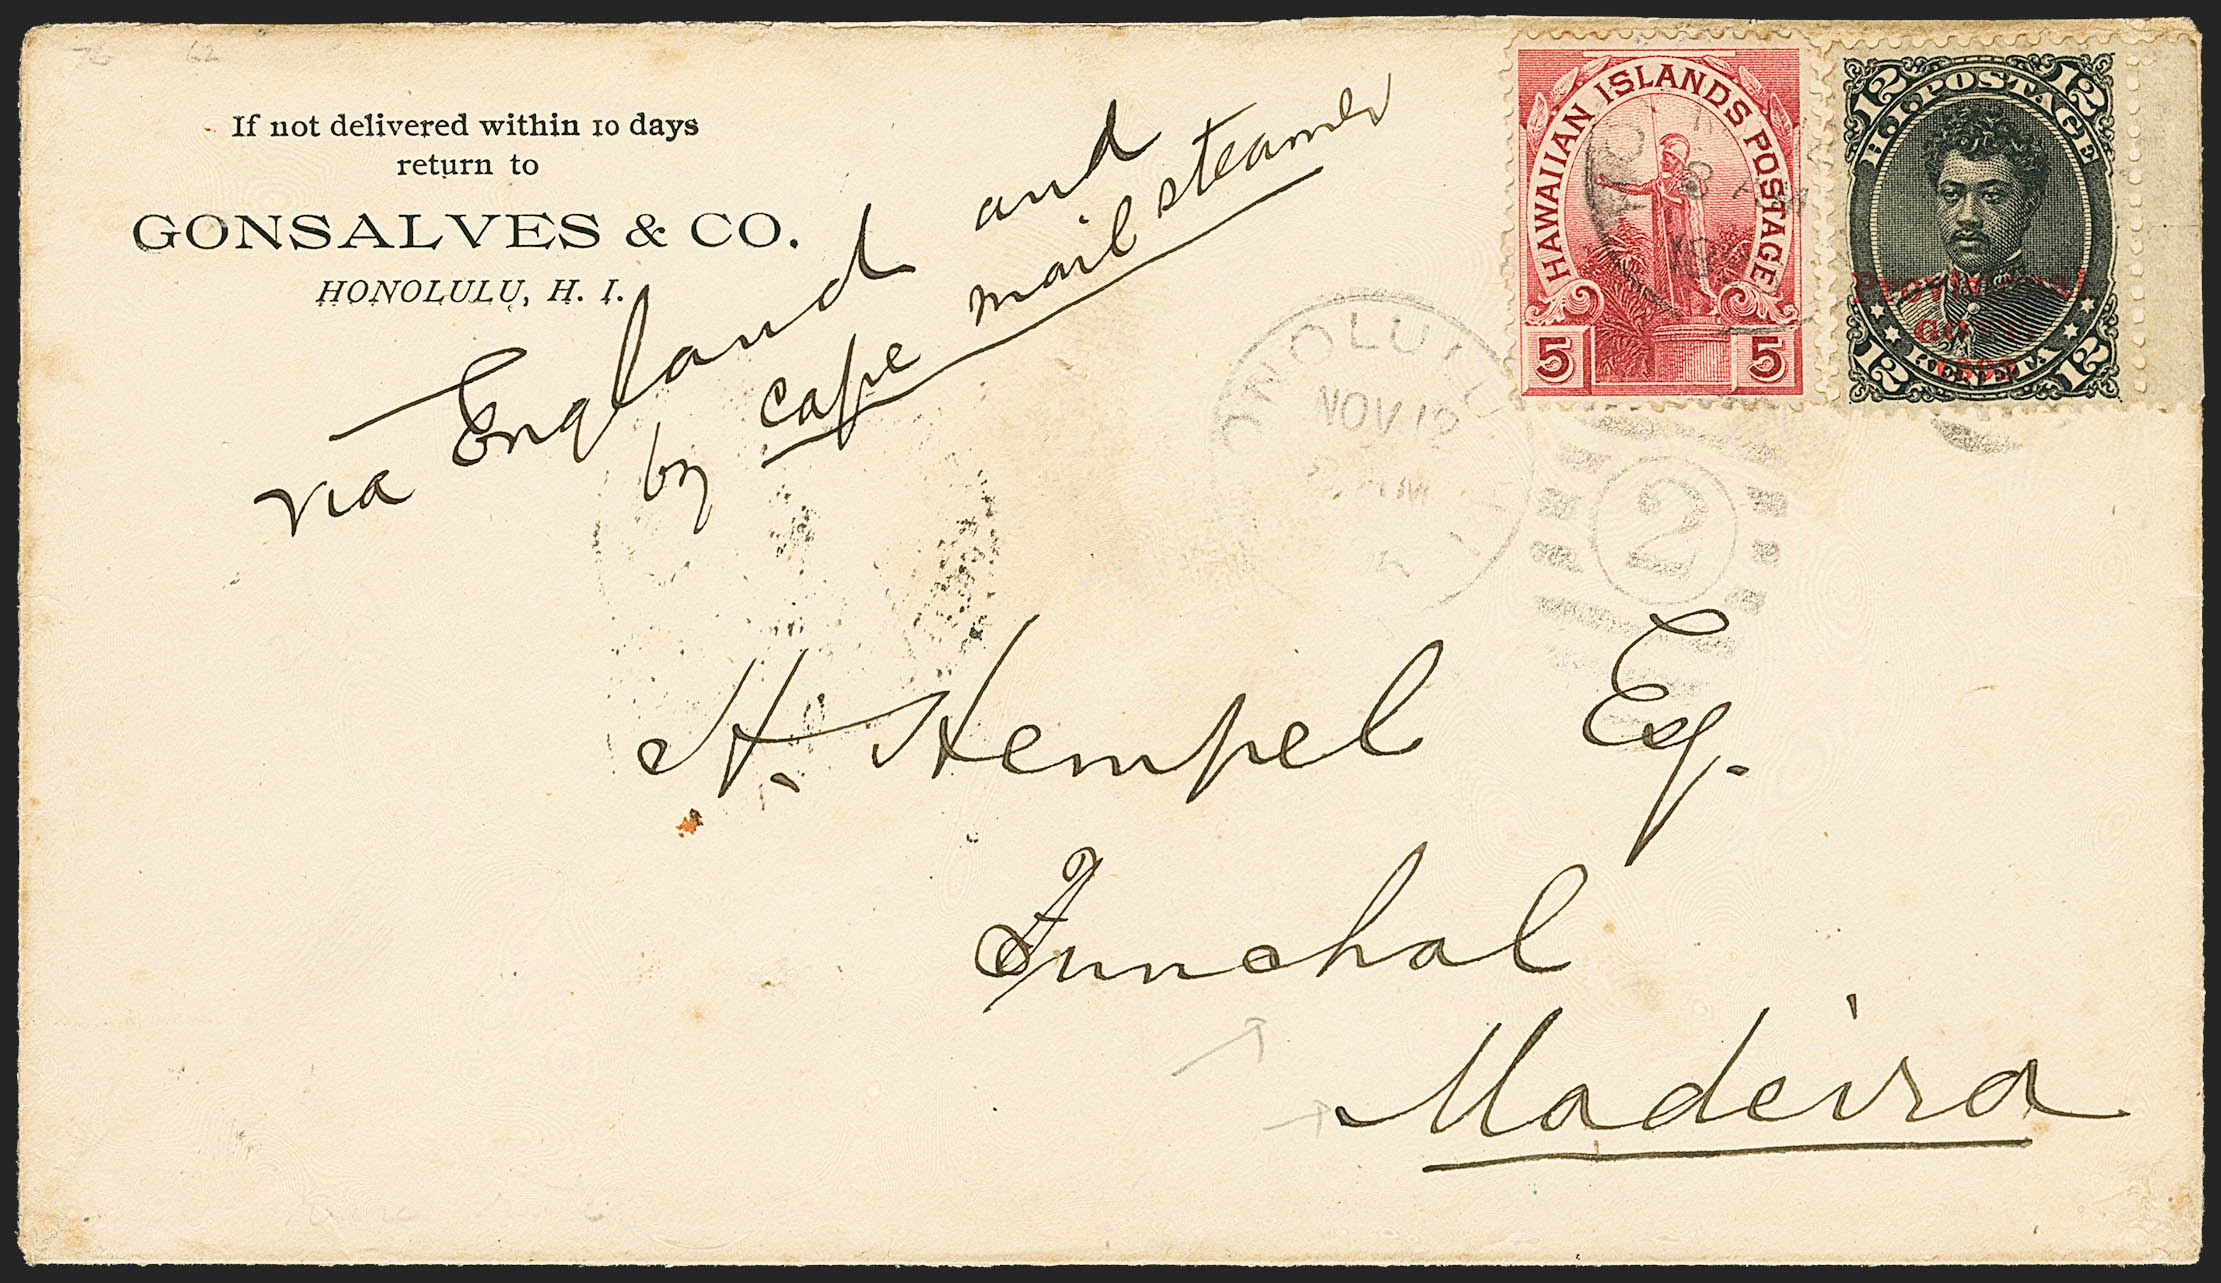 If not delivered within 10 days
return to
GONSALVES & CO.
HONOLULU, H. I.
via England and
by cape mail steamer
HAWAIIAN ISLANDS POSTAGE
5 5
12 POSTAGE 12
Provisional
GOVT.
1893
12 KENETA 12
HONOLULU
NOV 12
2
H. Hempel Esq.
Funchal
Madeira
62